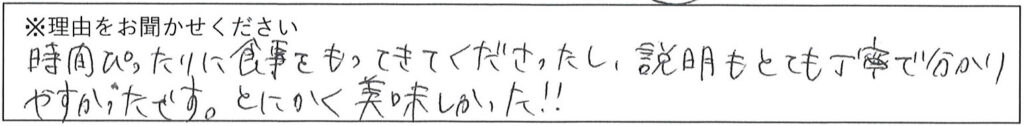 ※理由をお聞かせください
時間ぴったりに食事をもってきてくださったし、説明もとても丁寧で分かり
やすかったです。とにかく美味しかった!!